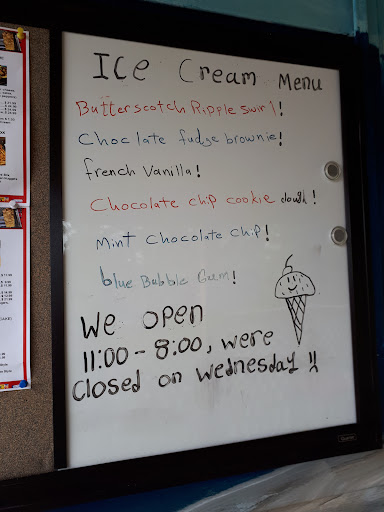 Ice Cream Menu
Butterscotch Ripple swirl!
Choclate fudge brownie!
french Vanilla!
Chocolate chip cookie dough!
Mint chocolate chip!
blue Bubble Gum!
We open
11:00 - 8:00, were
Closed on Wednesday!!